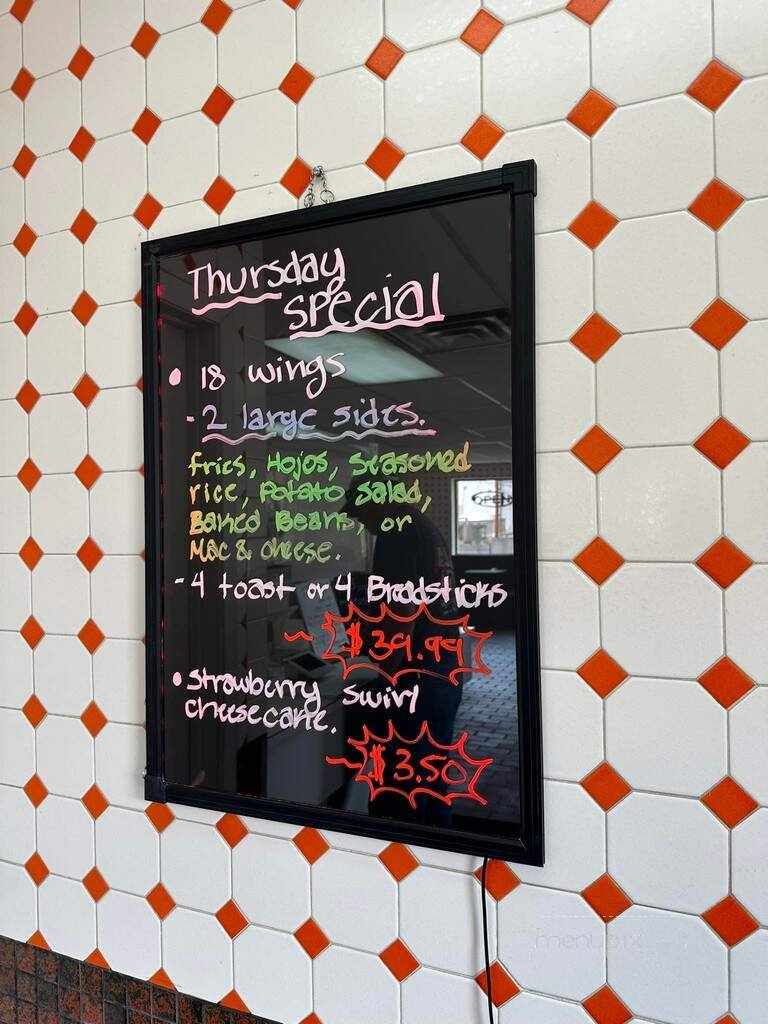 Thursday
Special
• 18 wings
- 2 large sides.
fries, Hojos, seasoned
rice, Potato Salad,
Baked Beans, or
Mac & cheese.
- 4 toast or 4 Bradsticks
~ $39.99
• Strawberry swirl
cheesecake.
~ $3.50
OPEN
menupix